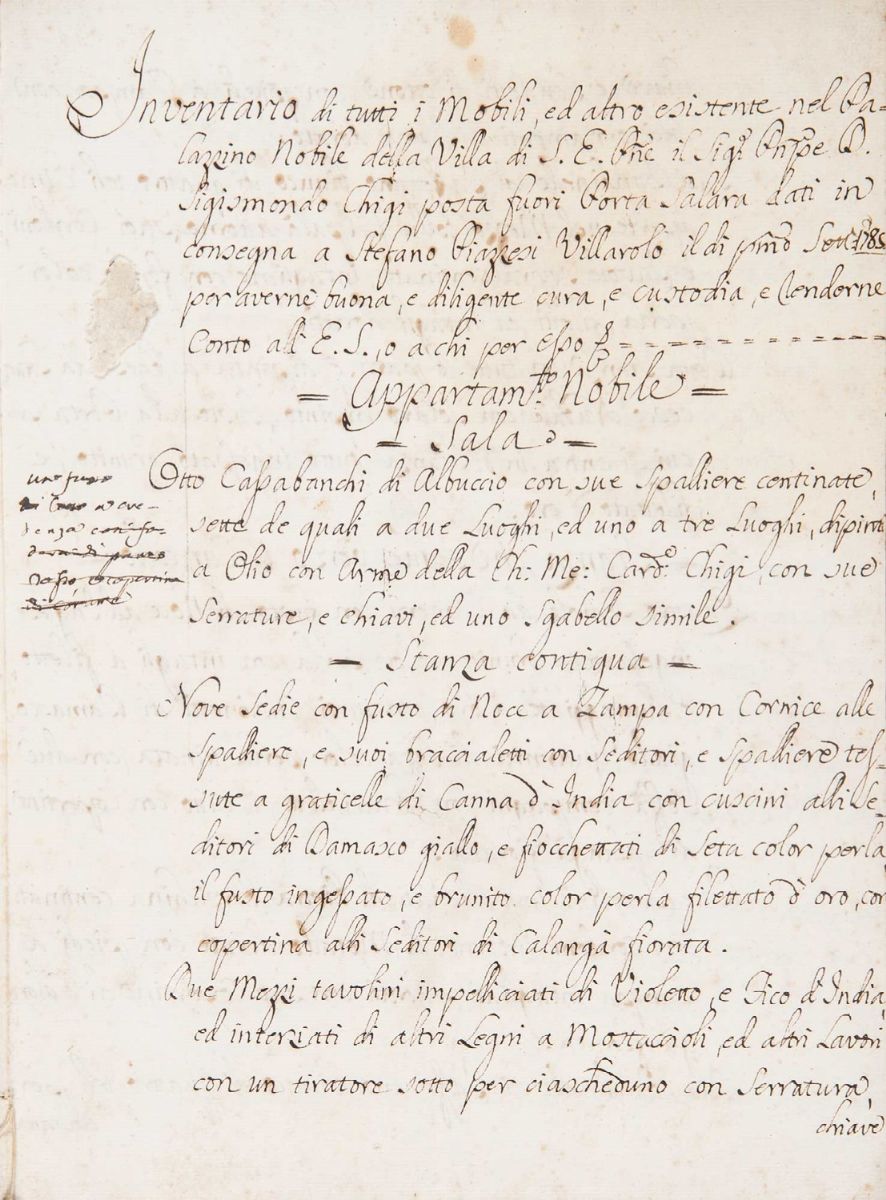 Inventario di tutti i Mobili, ed altro esistente nel Pa=
lazzino Nobile della Villa di S. E. Pñe il Sigr Pñpe D.
Sigismondo Chigi posta fuori Porta Salara dati in
consegna a Stefano Piazzesi Villarolo il di pmo Sett
per averne buona, e diligente cura, e custodia, e renderne
Conto all' E. S., o a chi per esso
= Appartamto: Nobile =
= Sala =
Otto Cassabanchi di Albuccio con sue spalliere centinate,
sette de quali a due Luoghi, ed uno a tre Luoghi, dipinti
a Olio con Arme della Ch: Me: Cardo: Chigi, con sue
serrature, e chiavi, ed uno sgabello simile.
uno
di
= Stanza contigua =
Nove sedie con fusto di Noce a Zampa con Cornice alle
spalliere, e suoi braccialetti con seditori, e spalliere tes=
sute a graticelle di Canna d'India con cuscini alli se=
ditori di Damasco giallo, e fiocchettati di seta color perla,
il fusto ingessato, e brunito color perla filettato d'oro, con
copertina alli seditori di Calangà fiorata.
Due Mezzi tavolini impellicciati di Violetto, e Fico d'India,
ed interziati di altri Legni a Mostaccioli, ed altri Lavori
con un tiratore sotto per ciascheduno con serratura,
chiave